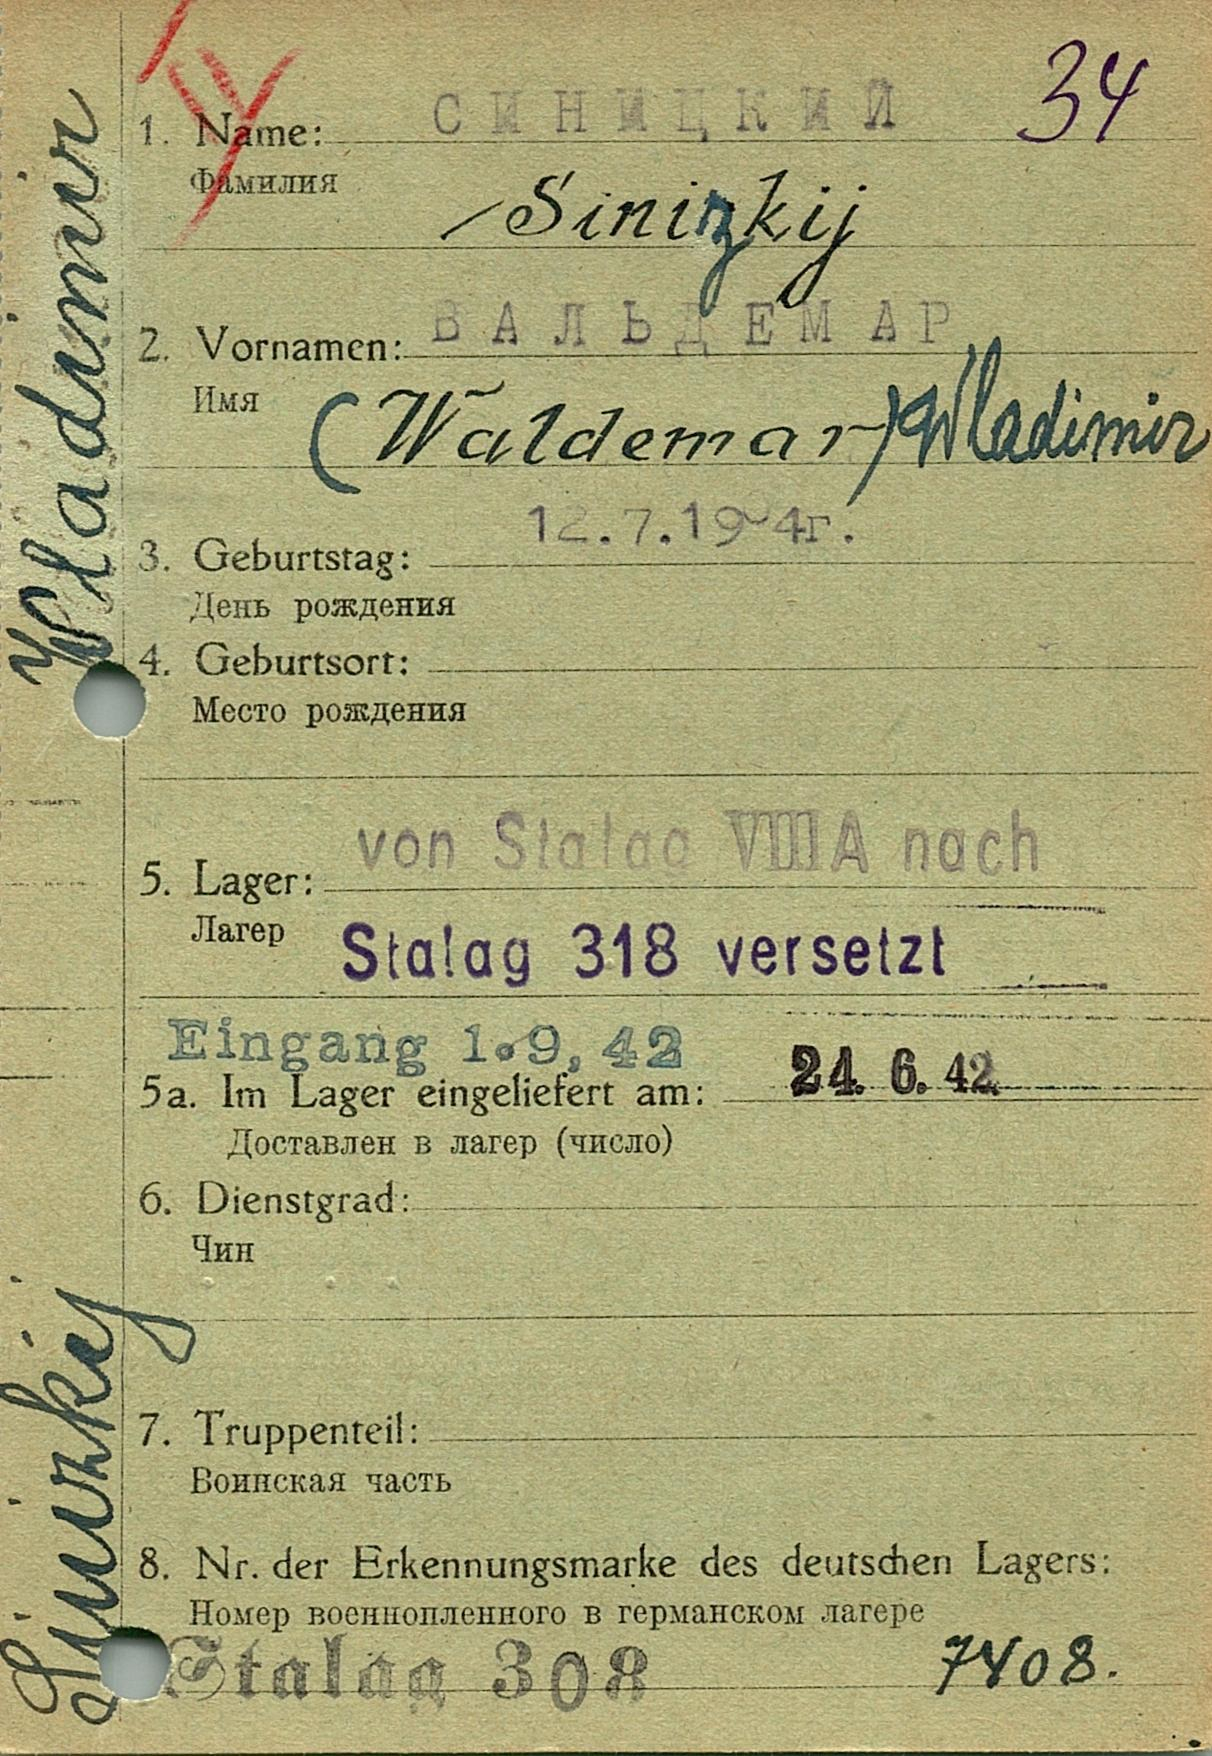 34
1. Name: СИНИЦКИЙ
Фамилия
Sinizkij
2. Vornamen: ВАЛЬДЕМАР
Имя
(Waldemar) Wladimir
12.7.1904г.
3. Geburtstag:
День рождения
4. Geburtsort:
Место рождения
von Stalag VIII A nach
5. Lager:
Лагер
Stalag 318 versetzt
Eingang 1.9,42
5a. Im Lager eingeliefert am: 24. 6. 42
Доставлен в лагер (число)
6. Dienstgrad:
Чин
7. Truppenteil:
Воинская часть
8. Nr. der Erkennungsmarke des deutschen Lagers:
Номер военнопленного в германском лагере
Stalag 308 7408.
Sinizkij Wladimir